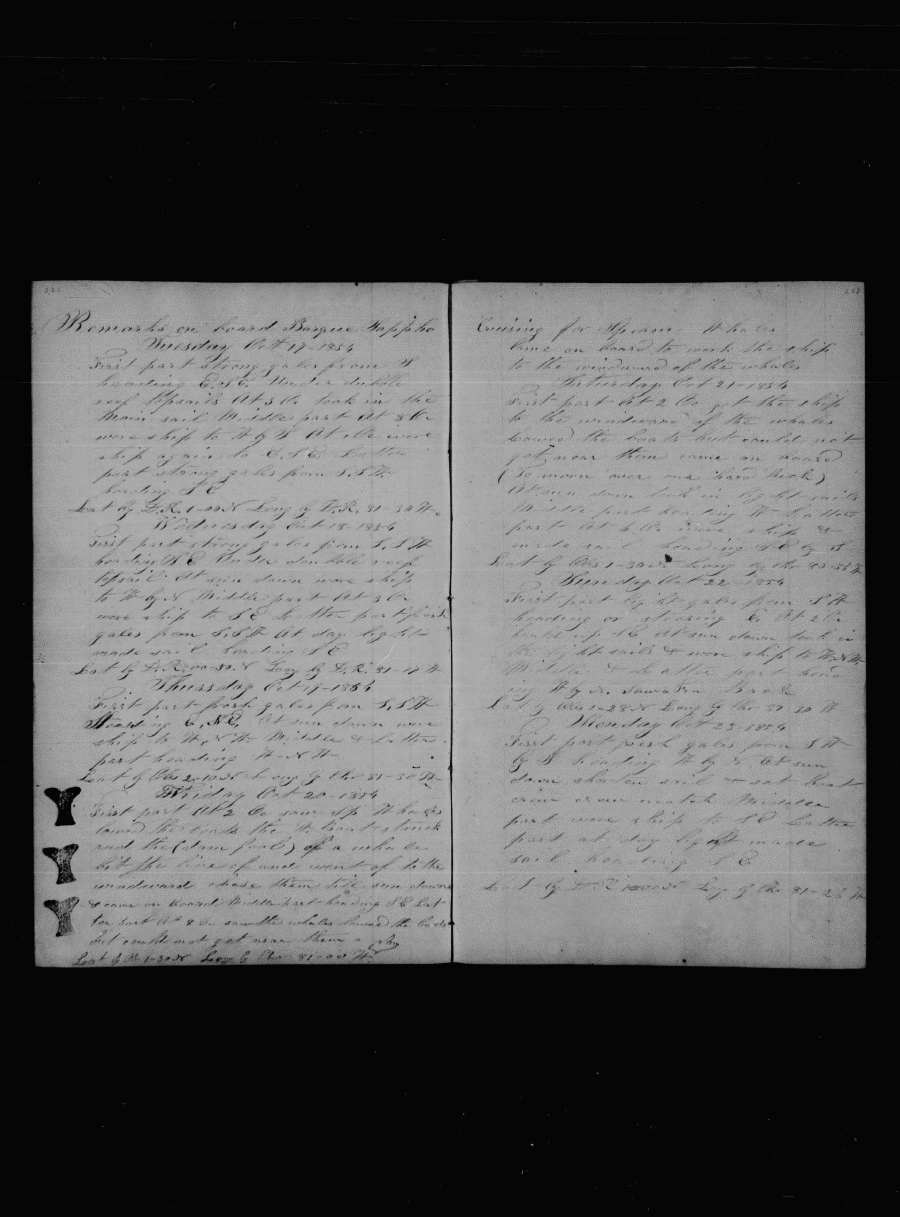 Remarks on board Barque Sappho
Tuesday Oct 17-1854
First part strong gales from S
heading E.S.E. Under dubble
reef topsails At 5 Oc took in the
main sail Middle part At 8 Oc
wore ship to W by S At Oc wore
ship again to E.S.E. Latter
part strong gales from S,S,W.
heading S E
Lat by D.R. 1-00 N Long by D.R. 81-30 W.
Wednesday Oct 18-1854
First part strong gales from S.S.W
heading S E Under double reef
topsail At sun down wore ship
to W by N Middle part At 3 Oc
wore ship to S E Latter part fresh
gales from S,S,W At day light
made sail heading S E
Lat by D.R. 00-50 N Long by D.R. 81-17 W
Thursday Oct 19-1854
First part fresh gales from S,S,W
Heading E, At sun down wore
ship to W, N W Middle & Latter
part heading W N W
Lat by Obs 2-10 N Long by Chr 81-30 W
Friday Oct 20-1854
First part At 2 Oc saw Sp Whales
lowed the boats the W. boat struck
and the (dam fool) of a whale
bit the line of and went of to the
windward chase them till sun down
& came on board Middle part heading S E Lat-
ter part At 8 Oc saw the whales lowed the boats
but could not get near them a
Lat by Ob 1-30 N Long by Chr 81-00 W
Cruising for Spearm Whales
Came on board to work the ship
to the windward of the whales
Saturday Oct 21-1854
First part At 2 Oc got the ship
to the windward of the whales
Lowed the boats but could not
get near them came on board
(To mourn over our hard luck)
At sun down took in light sails
Middle part heading W Latter
part At 4 Oc wore ship &
made sail heading S E by S
Lat by Obs 1-30 N Long by Chr 80-55 W
Sunday Oct 22-1854
First part light gales from S W
heading or steering E At 2 Oc
hauld up S E At sun down took in
the light sails & wore ship to W N W
Middle & Latter part head
ing W by N. Saw a Fin Back
Lat by Obs 1-28 N Long by Chr 80 30 W
Monday Oct 23-1854
First part fresh gales from S W
by S heading W by N At sun
down shorten sail & set boat
crew watch Middle
part wore ship to S E Latter
part at day light made
sail heading S E
Lat by D R Long by Chr 81-25 W